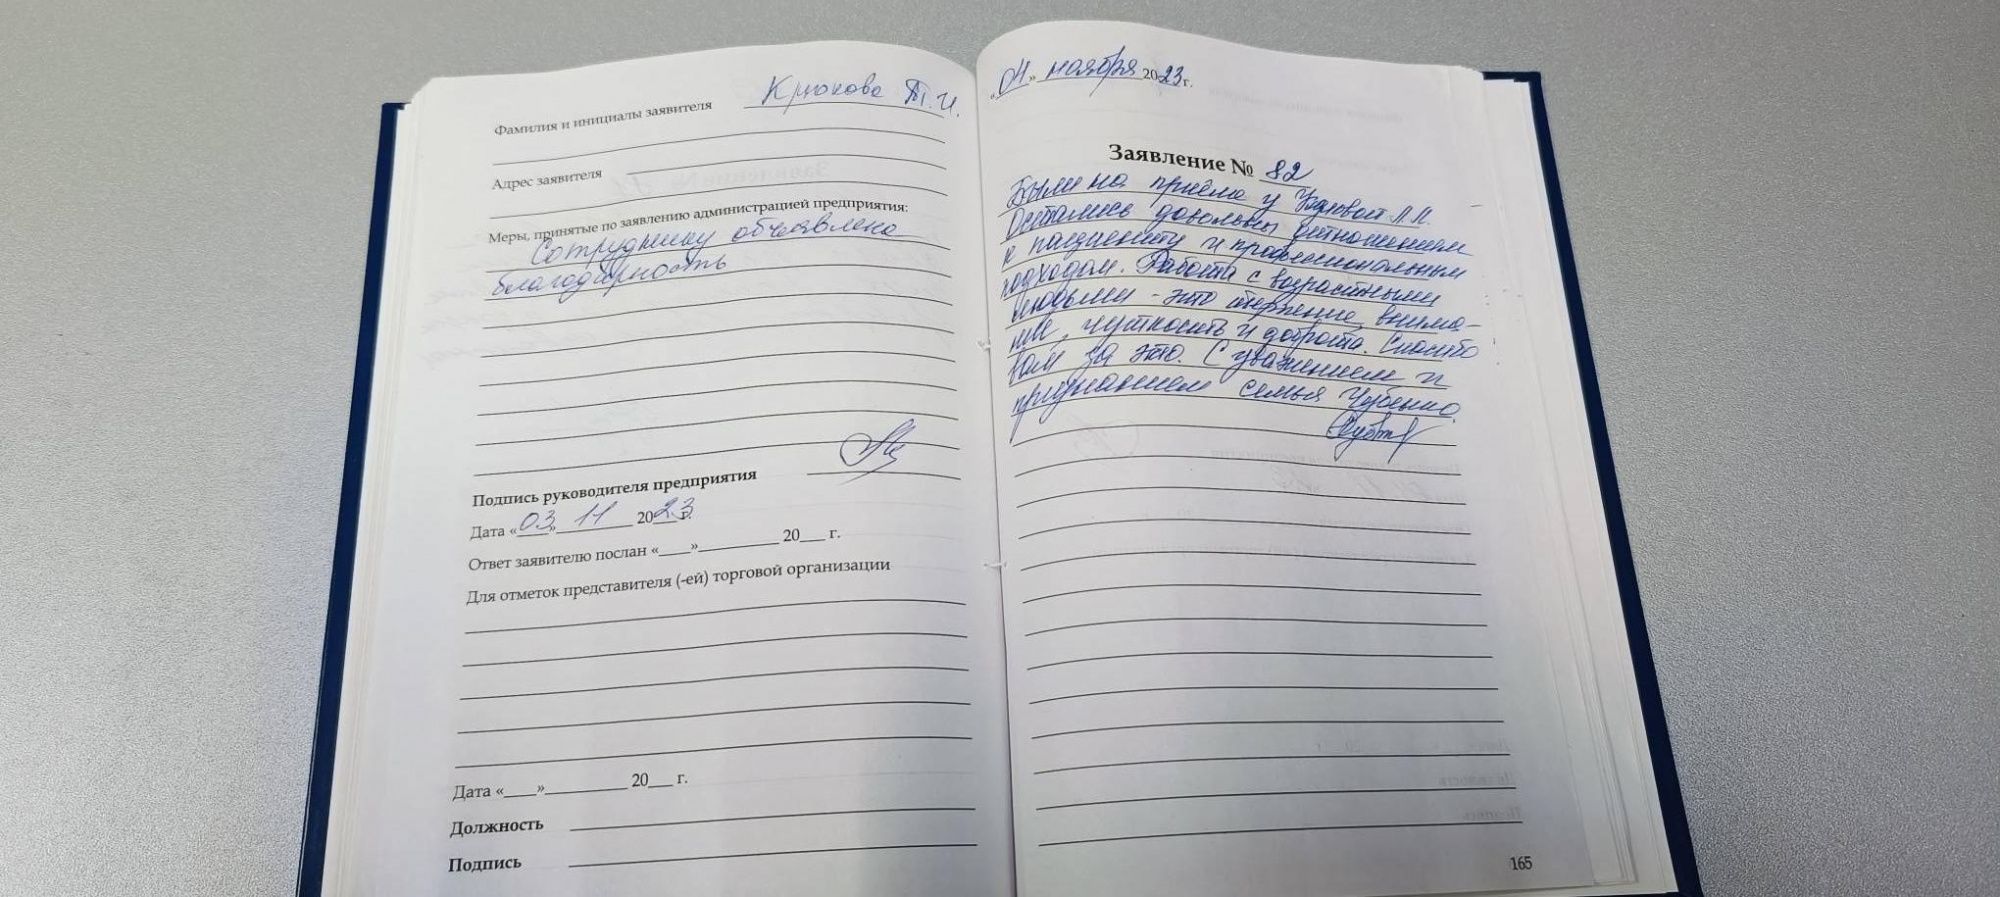 Фамилия и инициалы заявителя Крюкова Т.И.
Адрес заявителя
Меры, принятые по заявлению администрацией предприятия:
Сотруднику объявлена
благодарность
Подпись руководителя предприятия
Дата «03» 11 2023 г.
Ответ заявителю послан «___»_________ 20___ г.
Для отметок представителя (-ей) торговой организации
Дата «___»_________ 20___ г.
Должность
Подпись
«04» ноября 2023 г.
Заявление № 82
Были на приёме у Л.П.
Остались довольны отношением
к пациенту и профессиональным
подходом. Работа с возрастными
людьми - это терпение, внима-
ние, чуткость и доброта. Спасибо
Вам за это. С уважением и
признанием семья Чубенко.
165